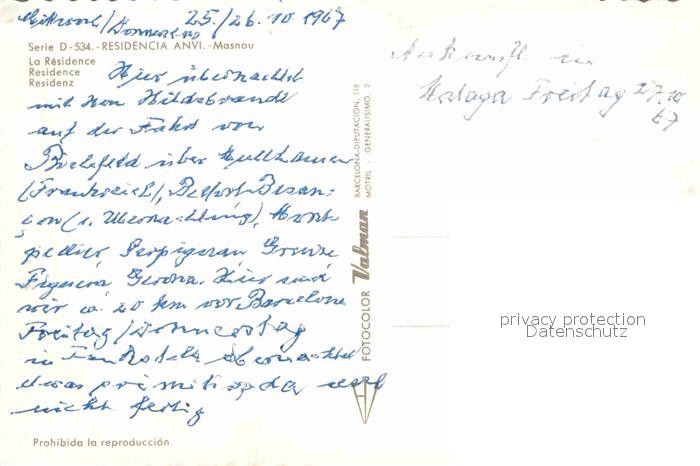 Mittwoch/Donnerstag 25./26.10 1967
Serie D-534.-RESIDENCIA ANVI.-Masnou
La Résidence
Residence
Residenz
Hier übernachtet
mit Hildebrandt
auf der Fahrt von
Bielefeld über Mullhausen
(Frankreich), Belfort Besan-
çon (1. Übernachtung), Mont-
pellier, Perpignan, Grenze
Figuera Gerona. Hier sind
wir ca. 20 km vor Barcelona
Freitag/Donnerstag
in übernachtet
etwas primitiv, da
nicht fertig
Prohibida la reproducción.
FOTOCOLOR Valman
BARCELONA-DIPUTACION, 118
MOTRIL - GENERALISIMO, 2
Ankunft in
Malaga Freitag 27.10
67
privacy protection
Datenschutz